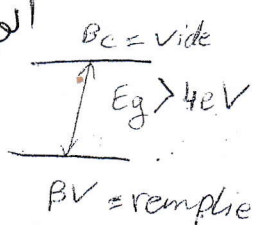 Bc = vide
Eg > 4eV
BV = remplie